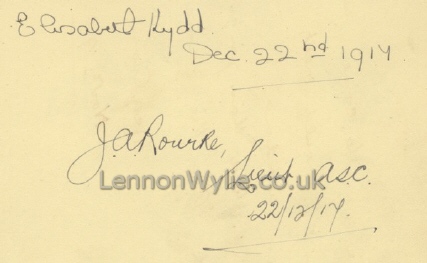 Elisabeth Kydd.
Dec. 22nd 1914
J.A. Rourke,
Lieut. A.S.C.
LennonWylie.co.uk
22/12/14.